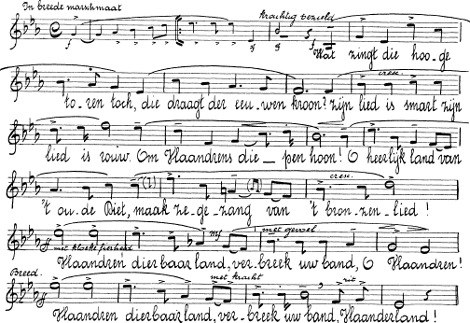 In breede marschmaat
krachtig bezield
Wat zingt die hoo-ge
cresc.
to-ren toch, die draagt der eeu-wen kroon? zijn lied is smart zijn
lied is rouw. Om Vlaandrens die - pen hoon! O heerlijk land van
cresc.
't ou-de Diet, maak ze-ge-zang van 't bron-zen-lied!
mf met gevoel
ff met kloeke fierheid
Vlaandren dierbaar land, ver-breek uw band, O Vlaandren!
Breed. met kracht
ff
Vlaandren dierbaar land, ver-breek uw band, Vlaanderland!